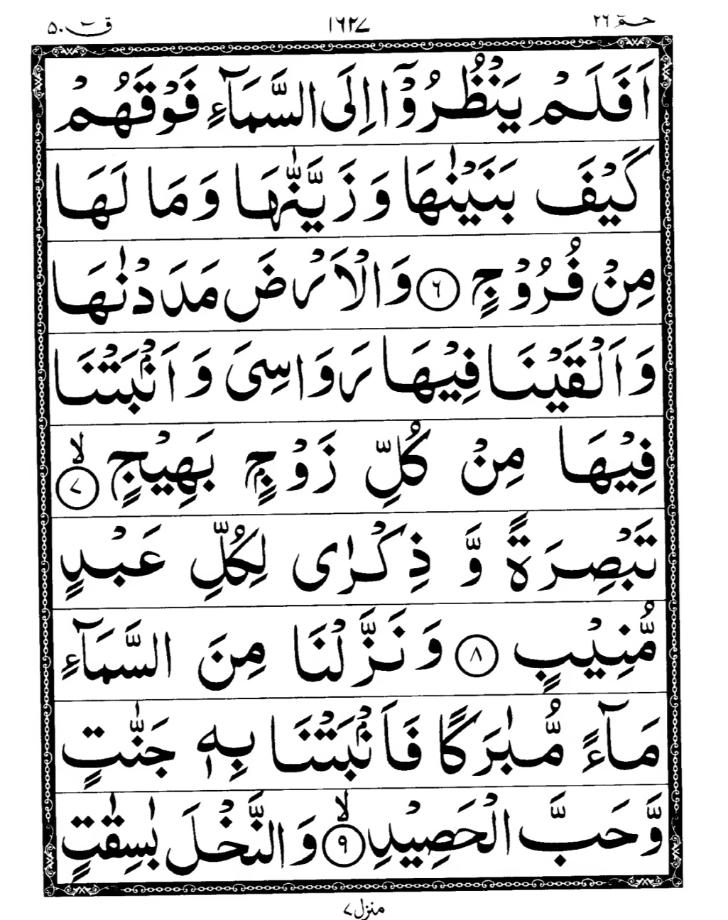 حٰمٓ ٢٦ ١٦٢٧ قٓ ٥٠
اَفَلَمْ یَنْظُرُوْۤا اِلَی السَّمَآءِ فَوْقَهُمْ
كَیْفَ بَنَیْنٰهَا وَ زَیَّنّٰهَا وَ مَا لَهَا
مِنْ فُرُوْجٍ ﴿٦﴾ وَ الْاَرْضَ مَدَدْنٰهَا
وَ اَلْقَیْنَا فِیْهَا رَوَاسِیَ وَ اَنْۢبَتْنَا
فِیْهَا مِنْ كُلِّ زَوْجٍۭ بَهِیْجٍ ﴿ۙ۷﴾
تَبْصِرَةً وَّ ذِكْرٰی لِكُلِّ عَبْدٍ
مُّنِیْبٍ ﴿٨﴾ وَ نَزَّلْنَا مِنَ السَّمَآءِ
مَآءً مُّبٰرَكًا فَاَنْۢبَتْنَا بِهٖ جَنّٰتٍ
وَّ حَبَّ الْحَصِیْدِ ﴿ۙ٩﴾ وَ النَّخْلَ بٰسِقٰتٍ
منزل ۷